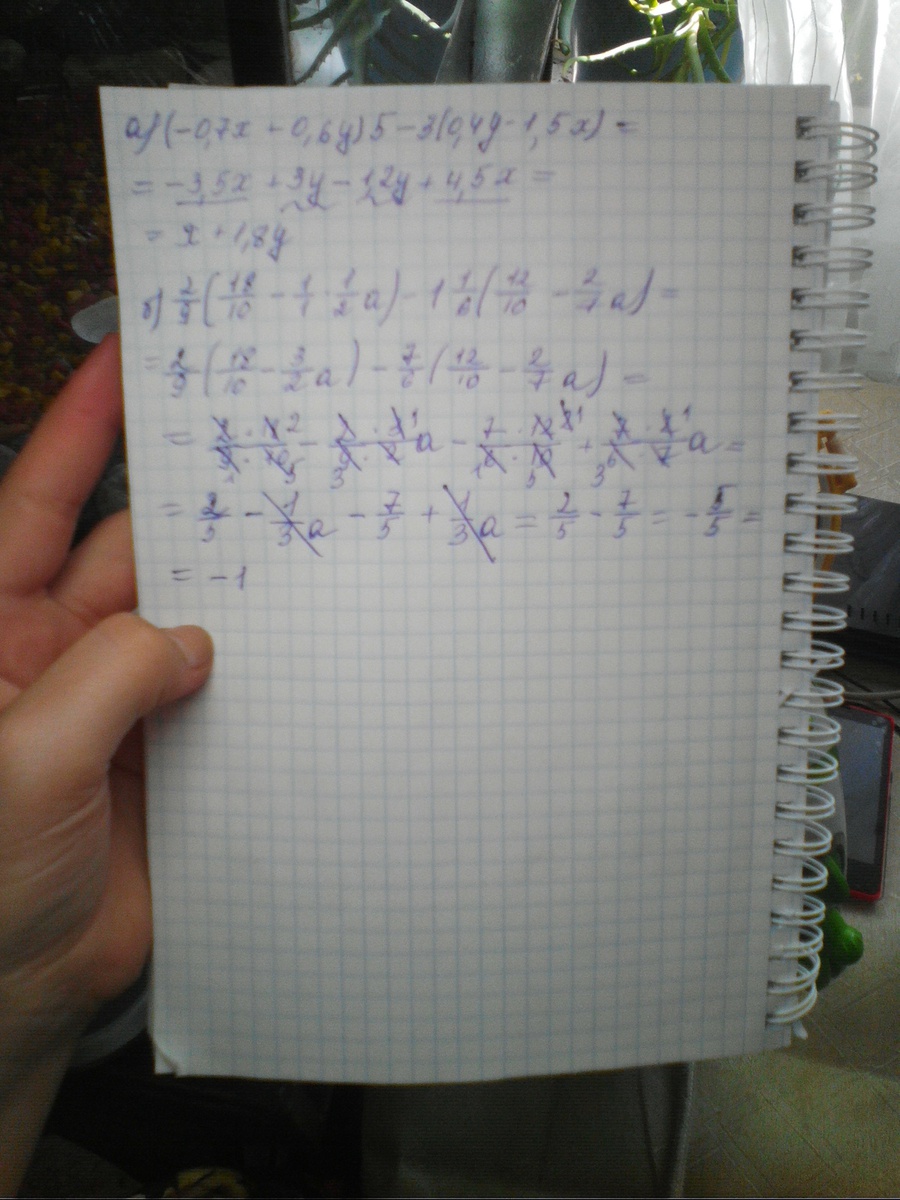 а) (-0,7x + 0,6y)5 - 3(0,4y - 1,5x) =
= -3,5x + 3y - 1,2y + 4,5x =
= x + 1,8y
б) 2/9 (18/10 - 1/1 · 1/2 a) - 1 1/6 (12/10 - 2/7 a) =
= 2/9 (18/10 - 3/2 a) - 7/6 (12/10 - 2/7 a) =
= - a - + a =
= 2/5 - 1/3 a - 7/5 + 1/3 a = 2/5 - 7/5 = - 5/5 =
= -1